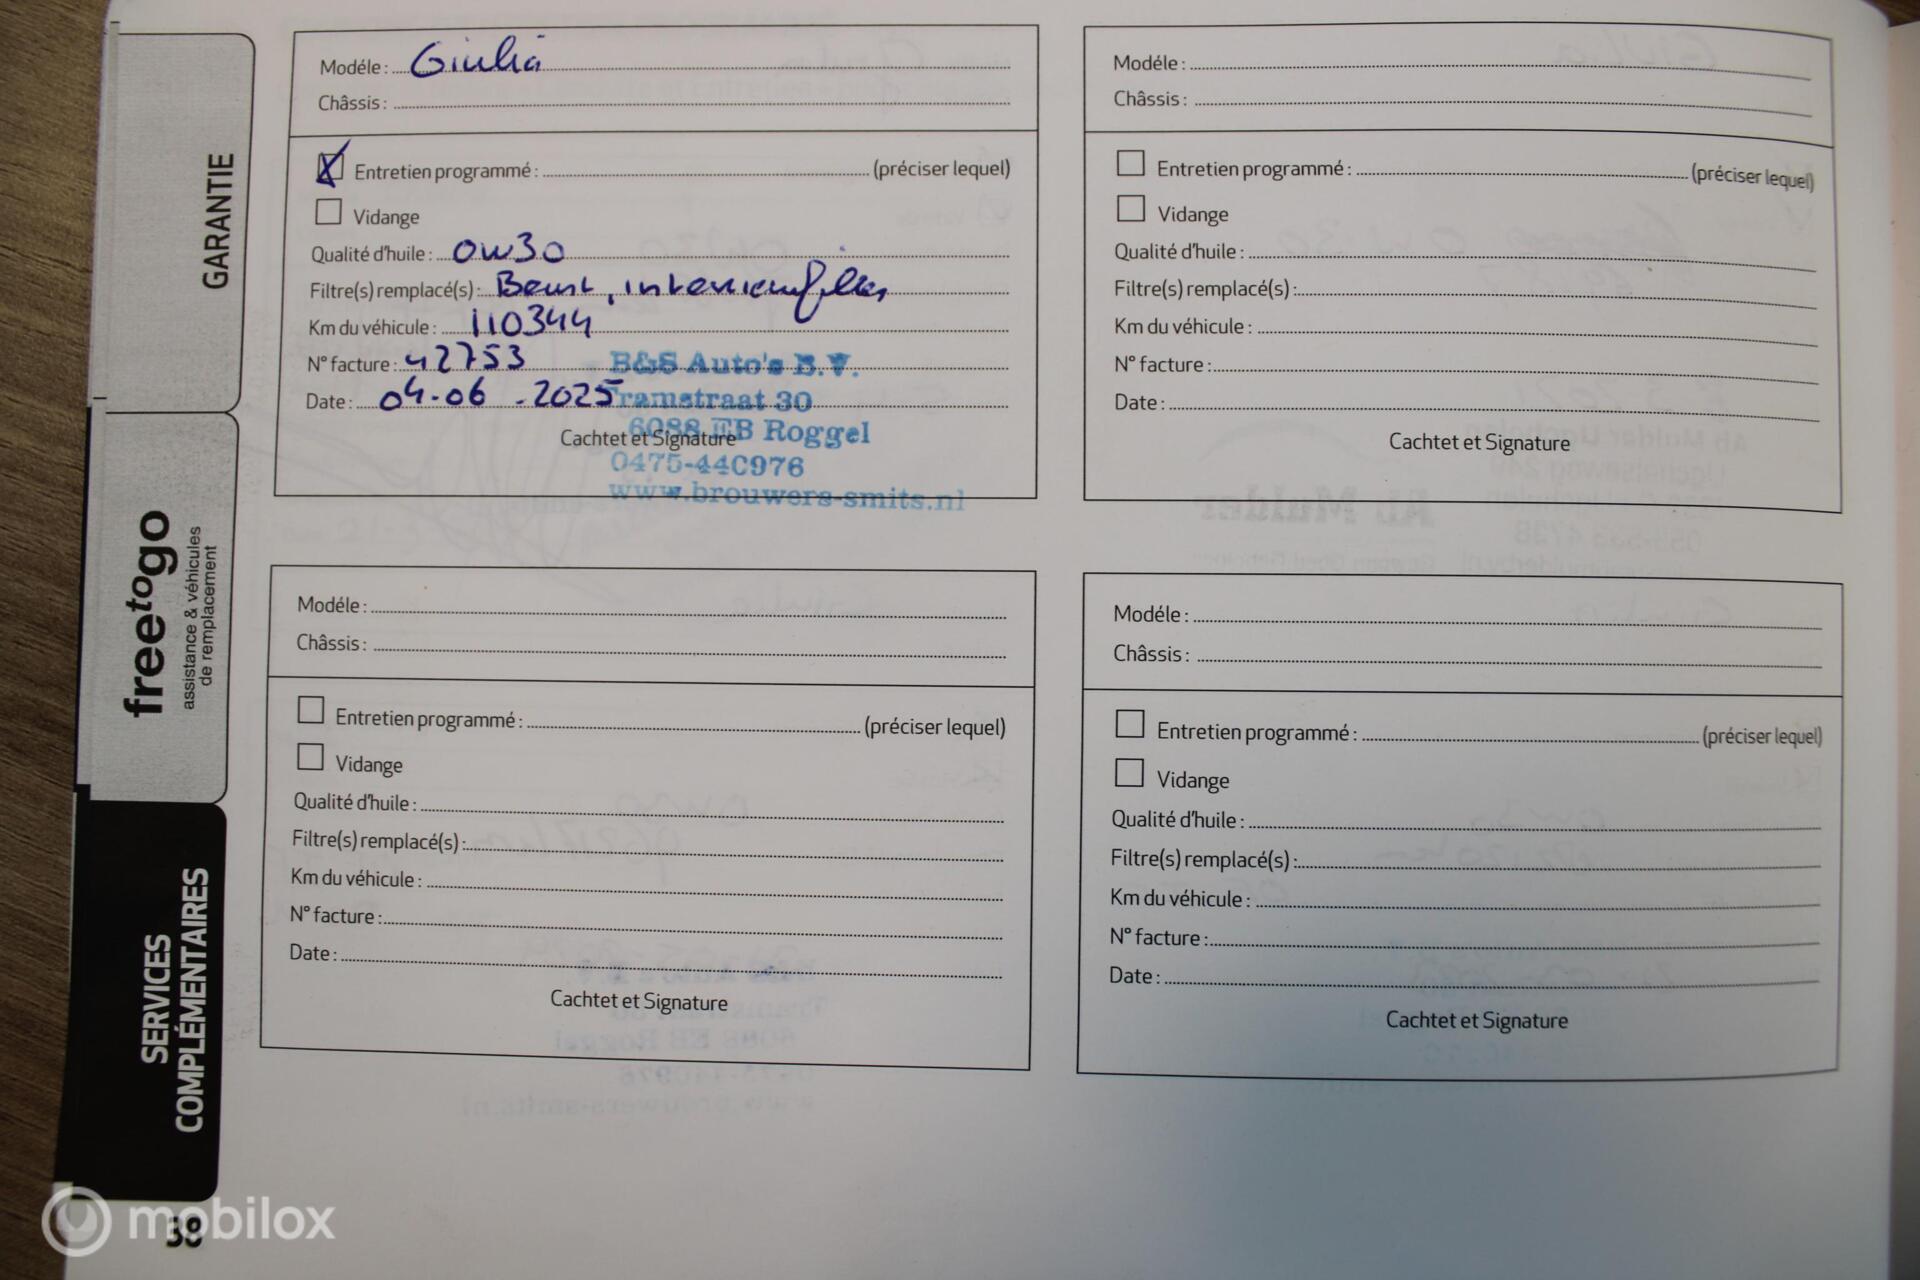 GARANTIE
freetogo
assistance & véhicules
de remplacement
SERVICES
COMPLÉMENTAIRES
Modéle : Giulia
Châssis :
Entretien programmé : (préciser lequel)
Vidange
Qualité d'huile : 0W30
Filtre(s) remplacé(s) :
Km du véhicule : 110344
N° facture : 42753
Date : 04-06-2025
Cachtet et Signature
B&S Auto's B.V.
Tramstraat 30
6088 EB Roggel
0475-440976
www.brouwers-smits.nl
Modéle :
Châssis :
Entretien programmé : (préciser lequel)
Vidange
Qualité d'huile :
Filtre(s) remplacé(s) :
Km du véhicule :
N° facture :
Date :
Cachtet et Signature
Modéle :
Châssis :
Entretien programmé : (préciser lequel)
Vidange
Qualité d'huile :
Filtre(s) remplacé(s) :
Km du véhicule :
N° facture :
Date :
Cachtet et Signature
Modéle :
Châssis :
Entretien programmé : (préciser lequel)
Vidange
Qualité d'huile :
Filtre(s) remplacé(s) :
Km du véhicule :
N° facture :
Date :
Cachtet et Signature
38
mobilox